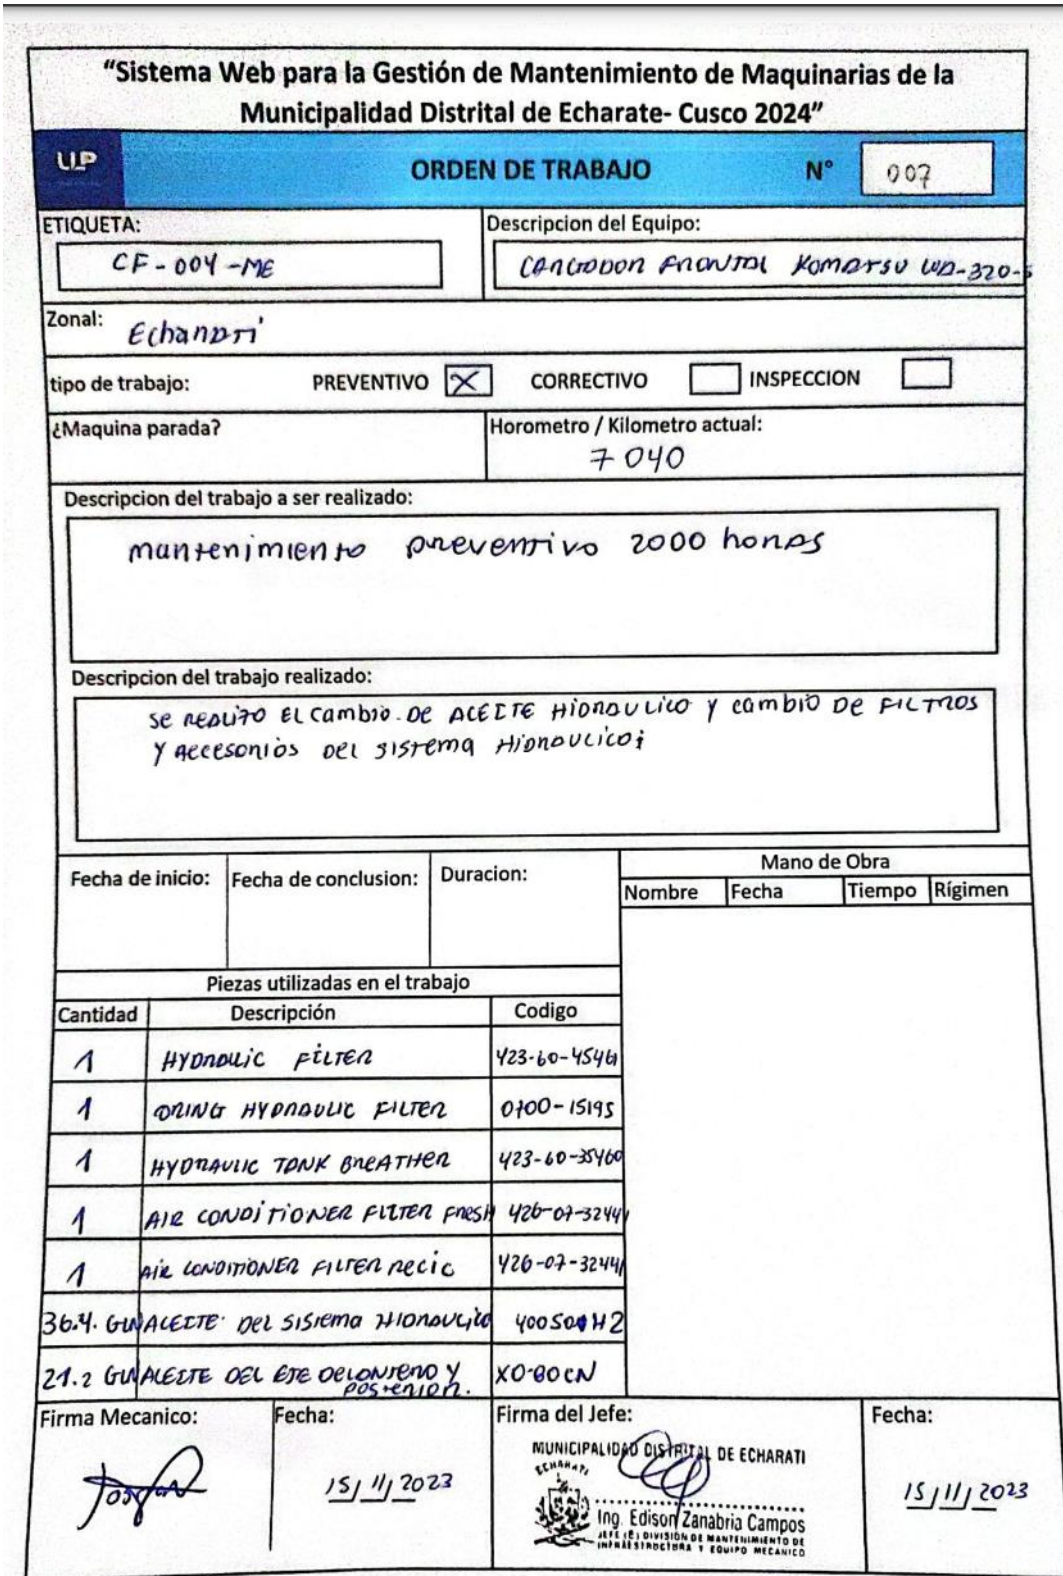 “Sistema Web para la Gestión de Mantenimiento de Maquinarias de la
Municipalidad Distrital de Echarate- Cusco 2024”
ULP
ORDEN DE TRABAJO N° 007
ETIQUETA: Descripcion del Equipo:
CF-004-ME CARGADOR FRONTAL KOMATSU WA-320-5
Zonal: Echarati
tipo de trabajo: PREVENTIVO X CORRECTIVO INSPECCION
¿Maquina parada? Horometro / Kilometro actual:
7040
Descripcion del trabajo a ser realizado:
mantenimiento preventivo 2000 horas
Descripcion del trabajo realizado:
se realizo EL cambio DE ACEITE HIDRAULICO y cambio DE FILTROS
Y ACCESORIOS DEL SISTEMA HIDRAULICO;
Fecha de inicio: Fecha de conclusion: Duracion: Mano de Obra
Nombre Fecha Tiempo Rígimen
Piezas utilizadas en el trabajo
Cantidad Descripción Codigo
1 HYDRAULIC FILTER 423-60-45461
1 ORING HYDRAULIC FILTER 0700-15195
1 HYDRAULIC TANK BREATHER 423-60-35460
1 AIR CONDITIONER FILTER FRESH 426-07-32441
1 AIR CONDITIONER FILTER RECIC 426-07-32441
36.4. ACEITE DEL SISTEMA HIDRAULICO
21.2 ACEITE DEL EJE DELANTERO Y
POSTERIOR. XO-80CN
Firma Mecanico: Fecha: Firma del Jefe: Fecha:
MUNICIPALIDAD DISTRITAL DE ECHARATI
ECHARATI
15/11/2023 15/11/2023
Ing. Edison Zanabria Campos
JEFE (E) DIVISIÓN DE MANTENIMIENTO DE
INFRAESTRUCTURA Y EQUIPO MECANICO